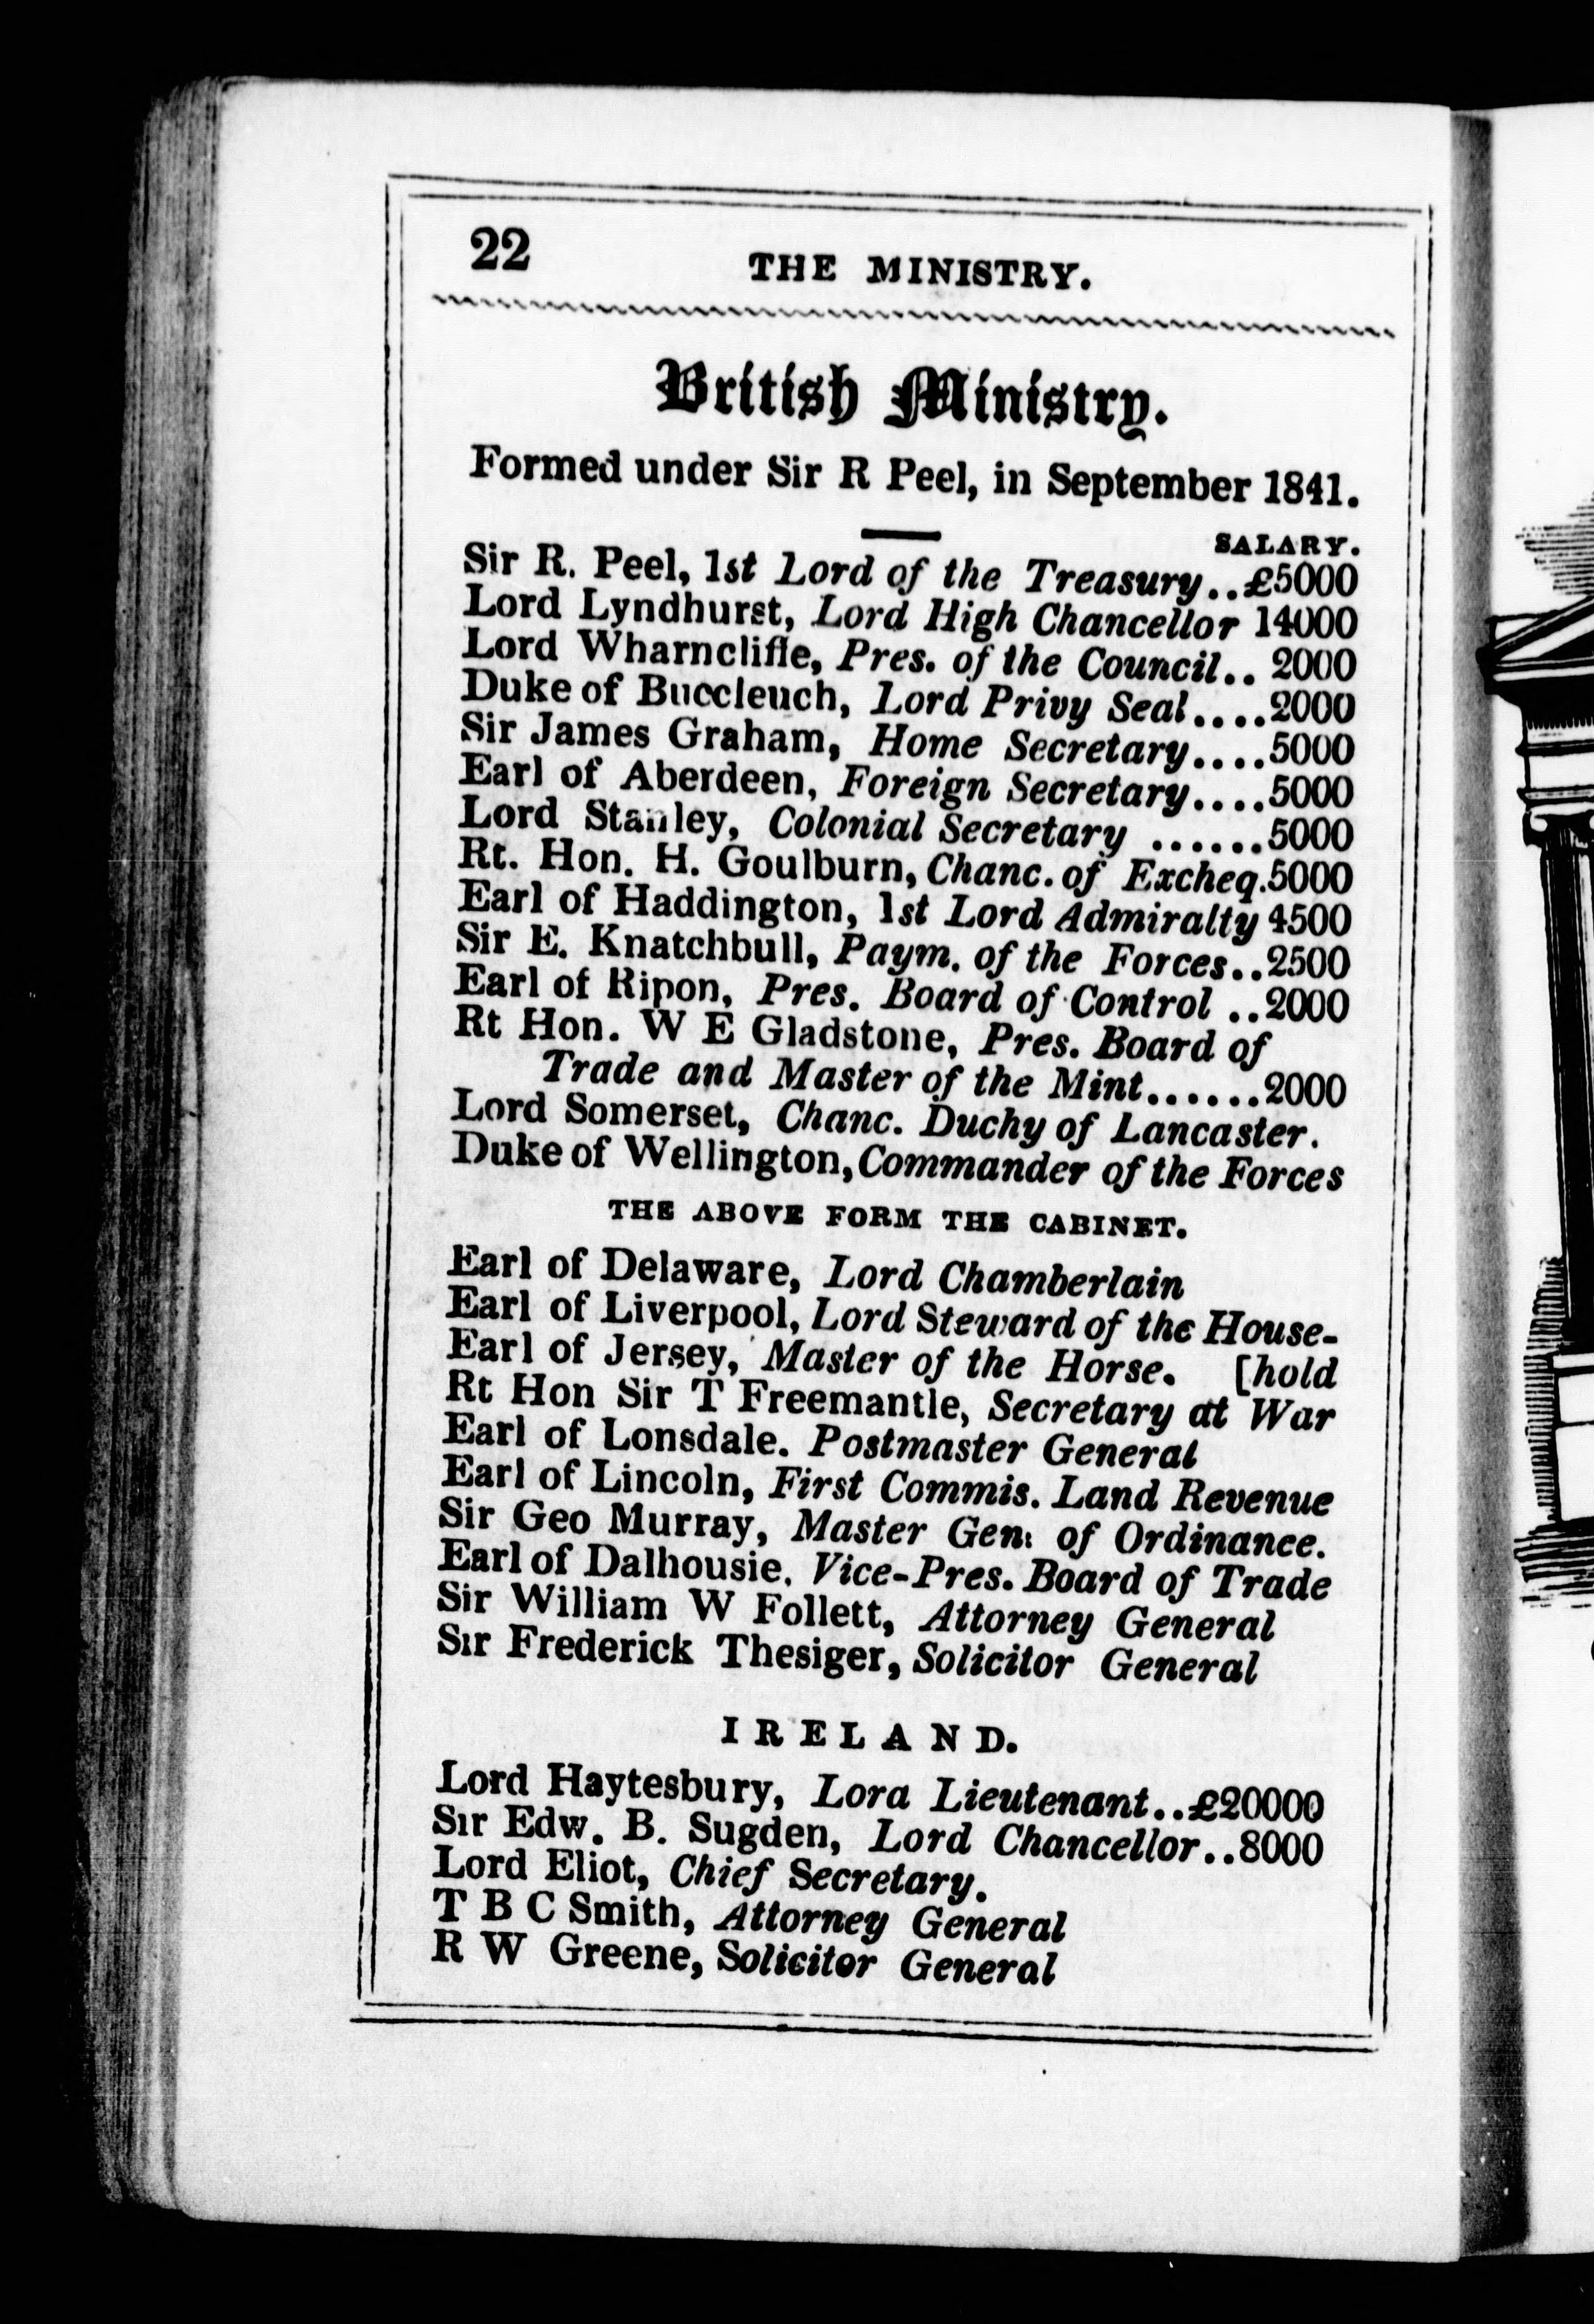 22
THE MINISTRY.
British Ministry.
Formed under Sir R Peel, in September 1841.
SALARY.
Sir R. Peel, 1st Lord of the Treasury..£5000
Lord Lyndhurst, Lord High Chancellor 14000
Lord Wharncliffe, Pres. of the Council.. 2000
Duke of Buccleuch, Lord Privy Seal....2000
Sir James Graham, Home Secretary....5000
Earl of Aberdeen, Foreign Secretary....5000
Lord Stanley, Colonial Secretary ......5000
Rt. Hon. H. Goulburn, Chanc. of Excheq.5000
Earl of Haddington, 1st Lord Admiralty 4500
Sir E. Knatchbull, Paym. of the Forces..2500
Earl of Ripon, Pres. Board of Control ..2000
Rt Hon. W E Gladstone, Pres. Board of
Trade and Master of the Mint......2000
Lord Somerset, Chanc. Duchy of Lancaster.
Duke of Wellington, Commander of the Forces
THE ABOVE FORM THE CABINET.
Earl of Delaware, Lord Chamberlain
Earl of Liverpool, Lord Steward of the House-
Earl of Jersey, Master of the Horse. [hold
Rt Hon Sir T Freemantle, Secretary at War
Earl of Lonsdale. Postmaster General
Earl of Lincoln, First Commis. Land Revenue
Sir Geo Murray, Master Gen. of Ordinance.
Earl of Dalhousie. Vice-Pres. Board of Trade
Sir William W Follett, Attorney General
Sir Frederick Thesiger, Solicitor General
IRELAND.
Lord Haytesbury, Lord Lieutenant..£20000
Sir Edw. B. Sugden, Lord Chancellor..8000
Lord Eliot, Chief Secretary.
T B C Smith, Attorney General
R W Greene, Solicitor General